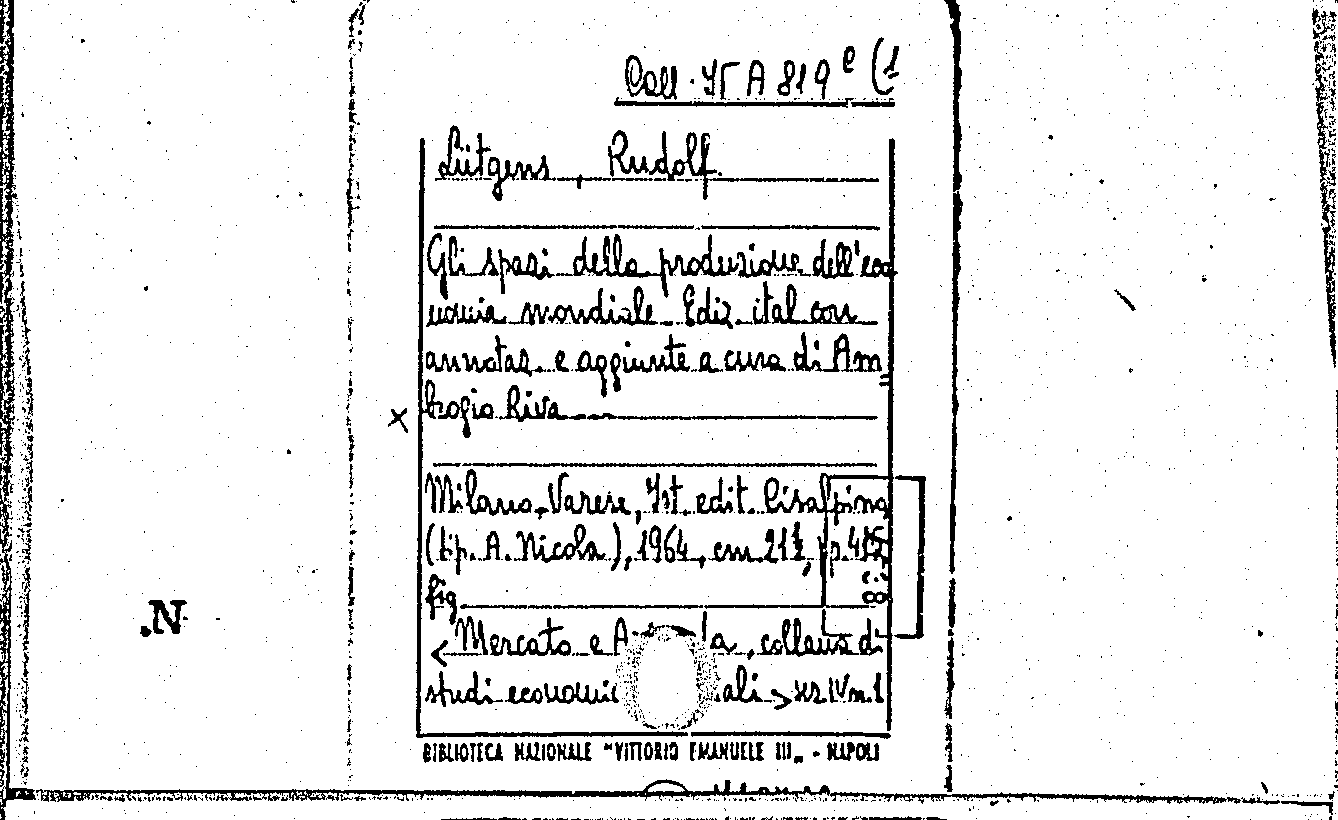 Coll. A 819 e (1
Lütgens, Rudolf.
Gli spazi della produzione dell'eco
nomia mondiale. Ediz. ital con
annotaz. e aggiunte a cura di Am=
brogio Riva....
X
Milano, Varese, Ist. edit. Cisalpino
(tip. A. Nicola), 1964, cm. 21½, pp.
fig.
< Mercato e la, collana di
studi ali > sez. IV n. 1
BIBLIOTECA NAZIONALE "VITTORIO EMANUELE III„ - NAPOLI
.N